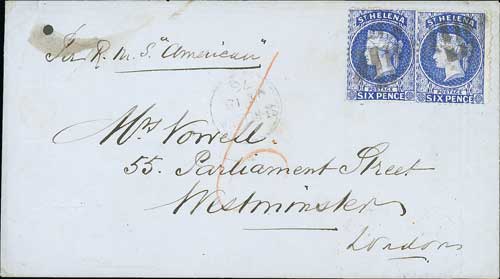 ST HELENA ST HELENA
POSTAGE POSTAGE
SIX PENCE SIX PENCE
Per R. M. S. "American"
Mrs Vowell.
55. Parliament Street
Westminster
London